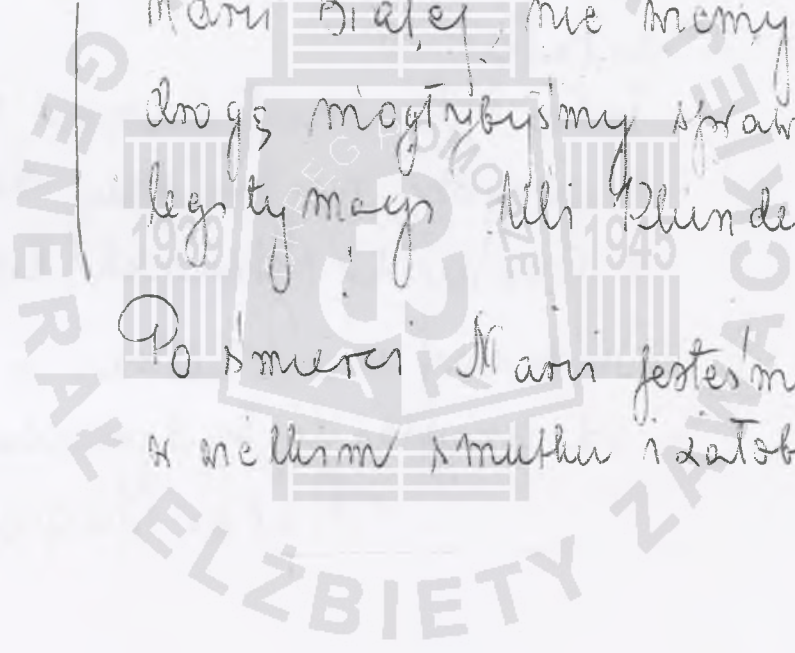 Marii Białej, nie wiemy
drogę moglibyśmy spraw
legitymacji Uli Plunde
Po śmierci Marii jesteśm
w wielkim smutku i żałob
GENERAŁ ELŻBIETY ZAWACKIEJ
OKRĘG POMORZE
1939
1945
AK